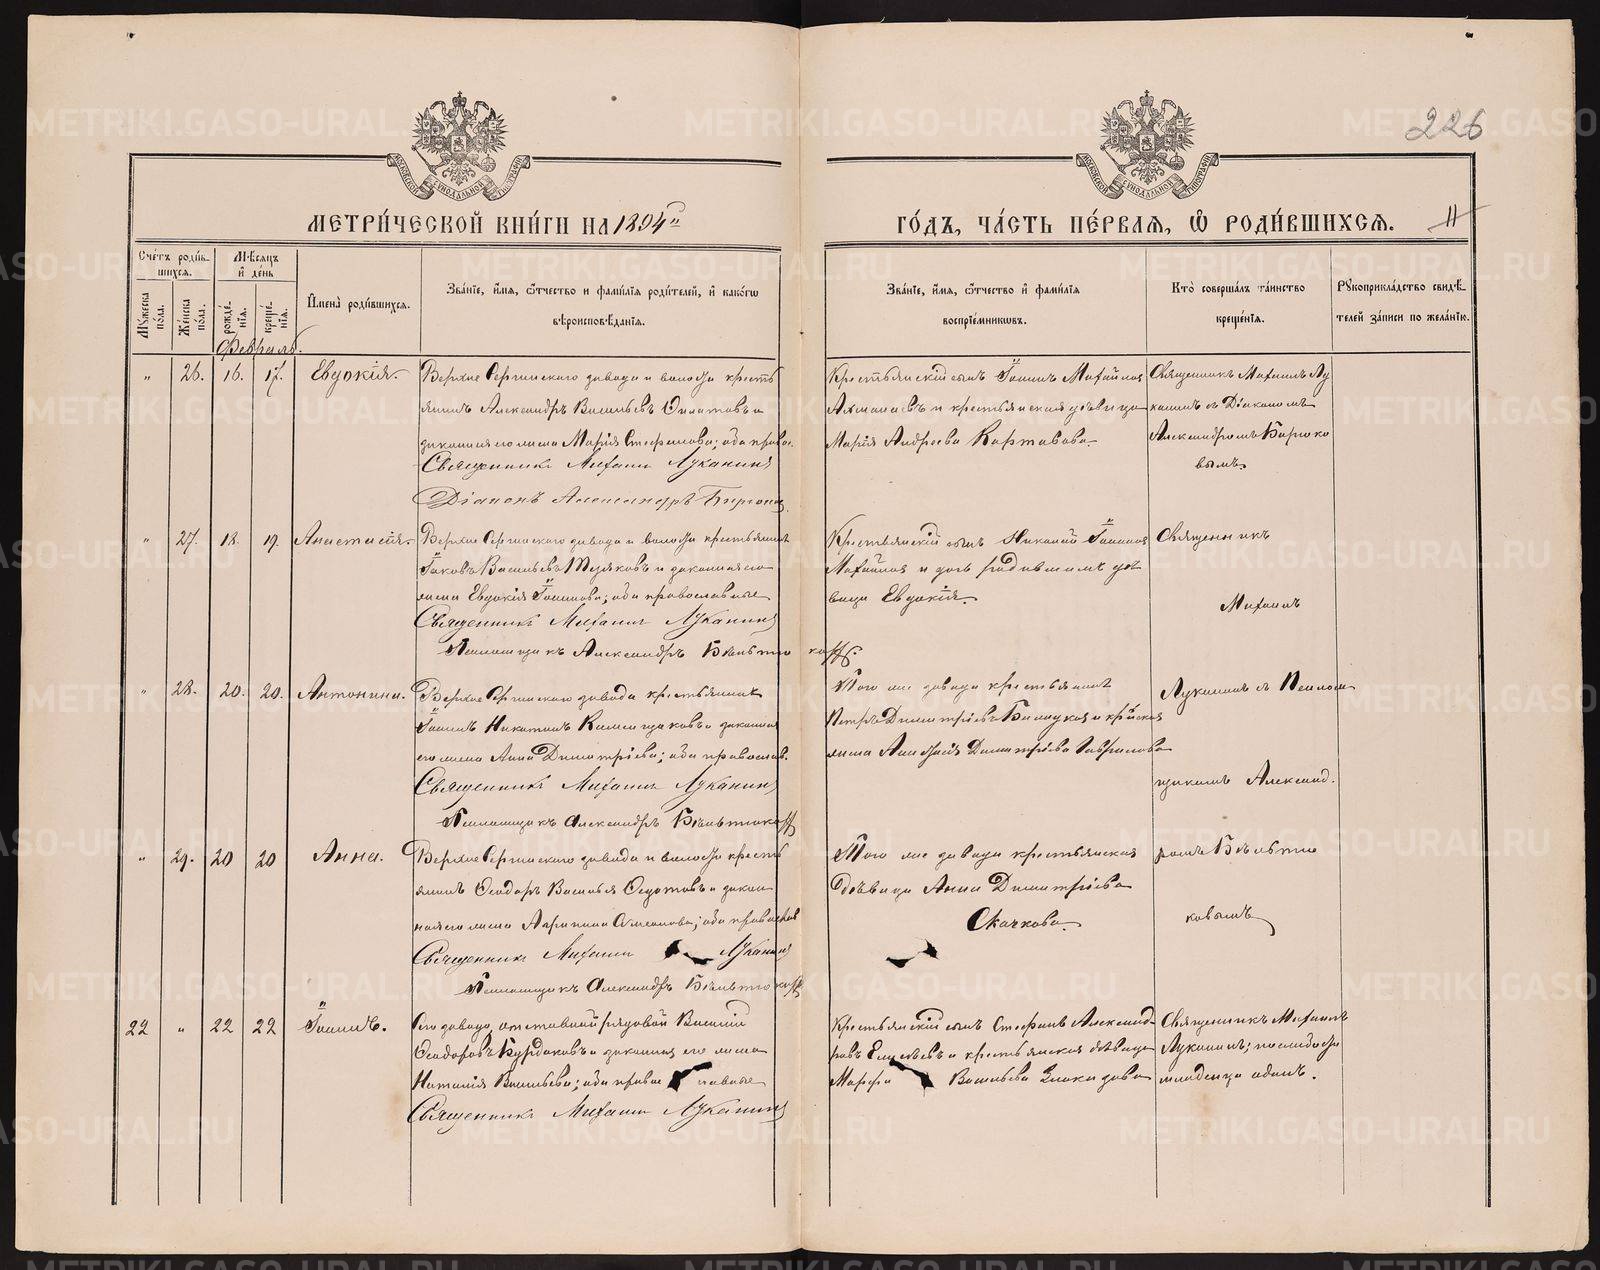 226
МЕТРИ́ЧЕСКОЙ КНИ́ГИ НА 1894й
ГО́ДЪ, ЧА́СТЬ ПЕ́РВАЯ, Ѿ РОДИ́ВШИХСЯ.
11
Сче́тъ роди́в-
шихся.
Мѣ́сяцъ
и҆ де́нь
Му́жеска
по́ла.
Же́нска
по́ла.
рожде́-
нїя.
креще́-
нїя.
И҆мена̀ роди́вшихся.
Зва́нїе, и҆́мя, ѻ҆́тчество и҆ фами́лїя роди́телей, и҆ како́гѡ
вѣроисповѣ́данїя.
Зва́нїе, и҆́мя, ѻ҆́тчество и҆ фами́лїя
воспрїе́мникѡвъ.
Кто̀ соверша́лъ та́инство
креще́нїя.
Рꙋкоприкла́дство свидѣ́-
телей за́писи по жела́нїю.
Февраль.
" 26. 16. 17. Евдокія.
Верхне Сергинскаго завода и волости кресть
янинъ Александръ Васильевъ и
законная его жена Марія Стефанова; оба правос.
Священникъ Михаилъ Луканинъ
Діаконъ Александръ
Крестьянскій сынъ Іоаннъ Михайловъ
и крестьянская дѣвица
Марія Андреева
Священникъ Михаилъ Лу
канинъ съ Діакономъ
Александромъ
вымъ.
" 27. 18. 19. Анастасія.
Верхне Сергинскаго завода и волости крестьянинъ
Іаковъ Васильевъ и законная его
жена Евдокія Іоаннова; оба православные
Священникъ Михаилъ Луканинъ
Псаломщикъ Александръ
Крестьянскій сынъ Николай Іоанновъ
Михайловъ и дочь родившимъ дѣ
вица Евдокія.
Священникъ
Михаилъ
" 28. 20. 20. Антонина.
Верхне Сергинскаго завода крестьянинъ
Іоаннъ Никитинъ и законная
его жена Анна Димитріева; оба православ.
Священникъ Михаилъ Луканинъ
Псаломщикъ Александръ
Того же завода крестьянинъ
Петръ Димитріевъ и крстьнская
жена Анастасія Димитріева Гаврилова
Луканинъ съ Псалом
щикомъ Александ.
" 29. 20 20 Анна.
Верхне Сергинскаго завода и волости кресть
янинъ Ѳеодоръ Васильевъ Ѳедотовъ и закон
ная его жена Агрипина Симеонова; оба православ
Священникъ Михаилъ Луканинъ
Псаломщикъ Александръ
Того же завода крестьянская
дѣвица Анна Димитріева
Скачкова.
ромъ
ковымъ
22 " 22 22 Іоаннъ.
Сего завода, отставной рядовой Василій
Ѳеодоровъ Бурдаковъ и законная его жена
Наталія Васильева; оба правос лавные
Священникъ Михаилъ Луканинъ
Крестьянскій сынъ Стефанъ Александ-
ровъ и крестьянская дѣвица
Марфа Васильева
Священникъ Михаилъ
Луканинъ;
младенца одинъ.
METRIKI.GASO-URAL.RU